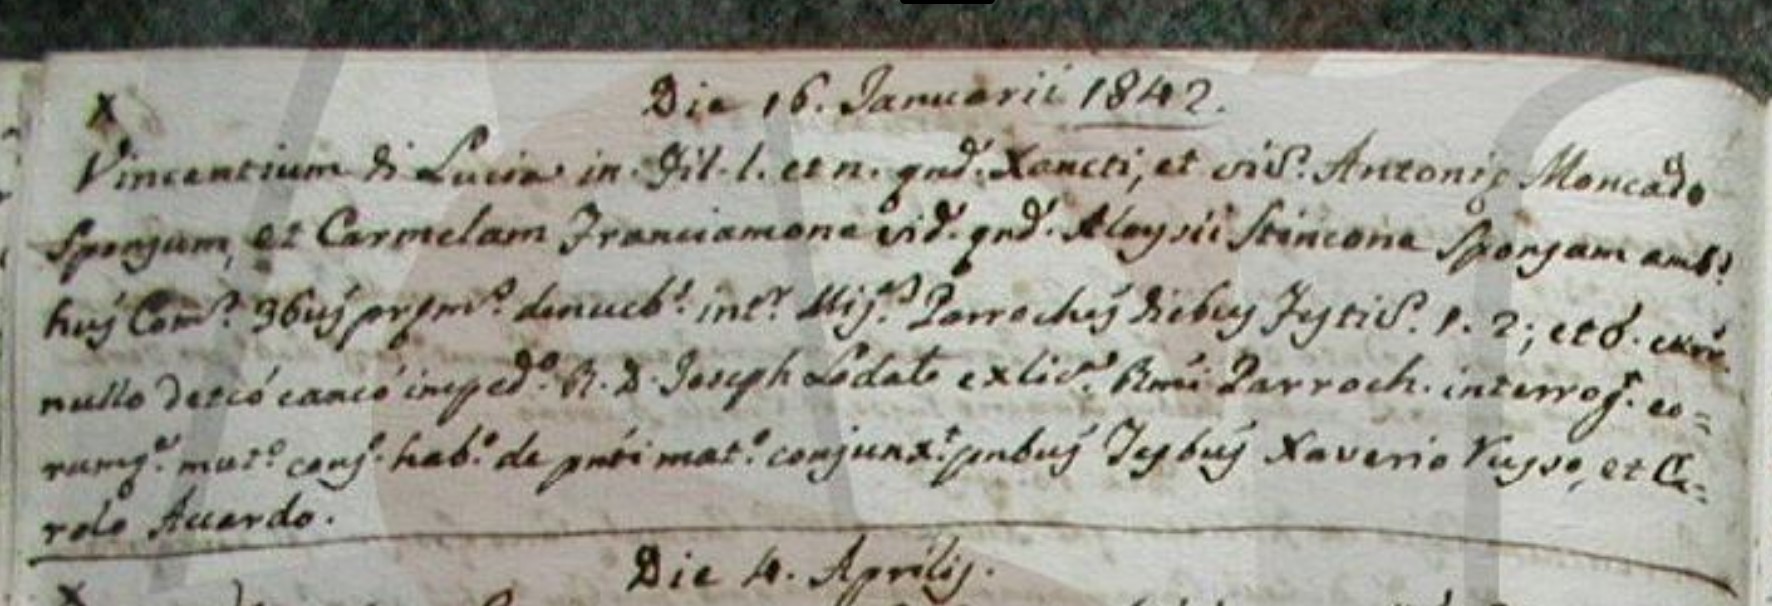 x
Die 16. Januarii 1842.
Vincentium di Lucia in. Fil. l. et n. qnd. Xancti, et vid. Antonie Moncado
Sponsum, et Carmelam Franciamone vid. qnd. Aloysii Stincone Sponsam amb.
huj Com. 3buj denucb. int. Parrochej diebuj 1. 2; et 6.
nullo imped. R. D. Joseph Lodato ex lic. Rmi Parroch. interrog. eo=
rumq. mut. conj. hab. de pnti mat. conjunx. pnbuj Xaverio et Ca=
rolo Accardo.
x
Die 4. Aprilis.